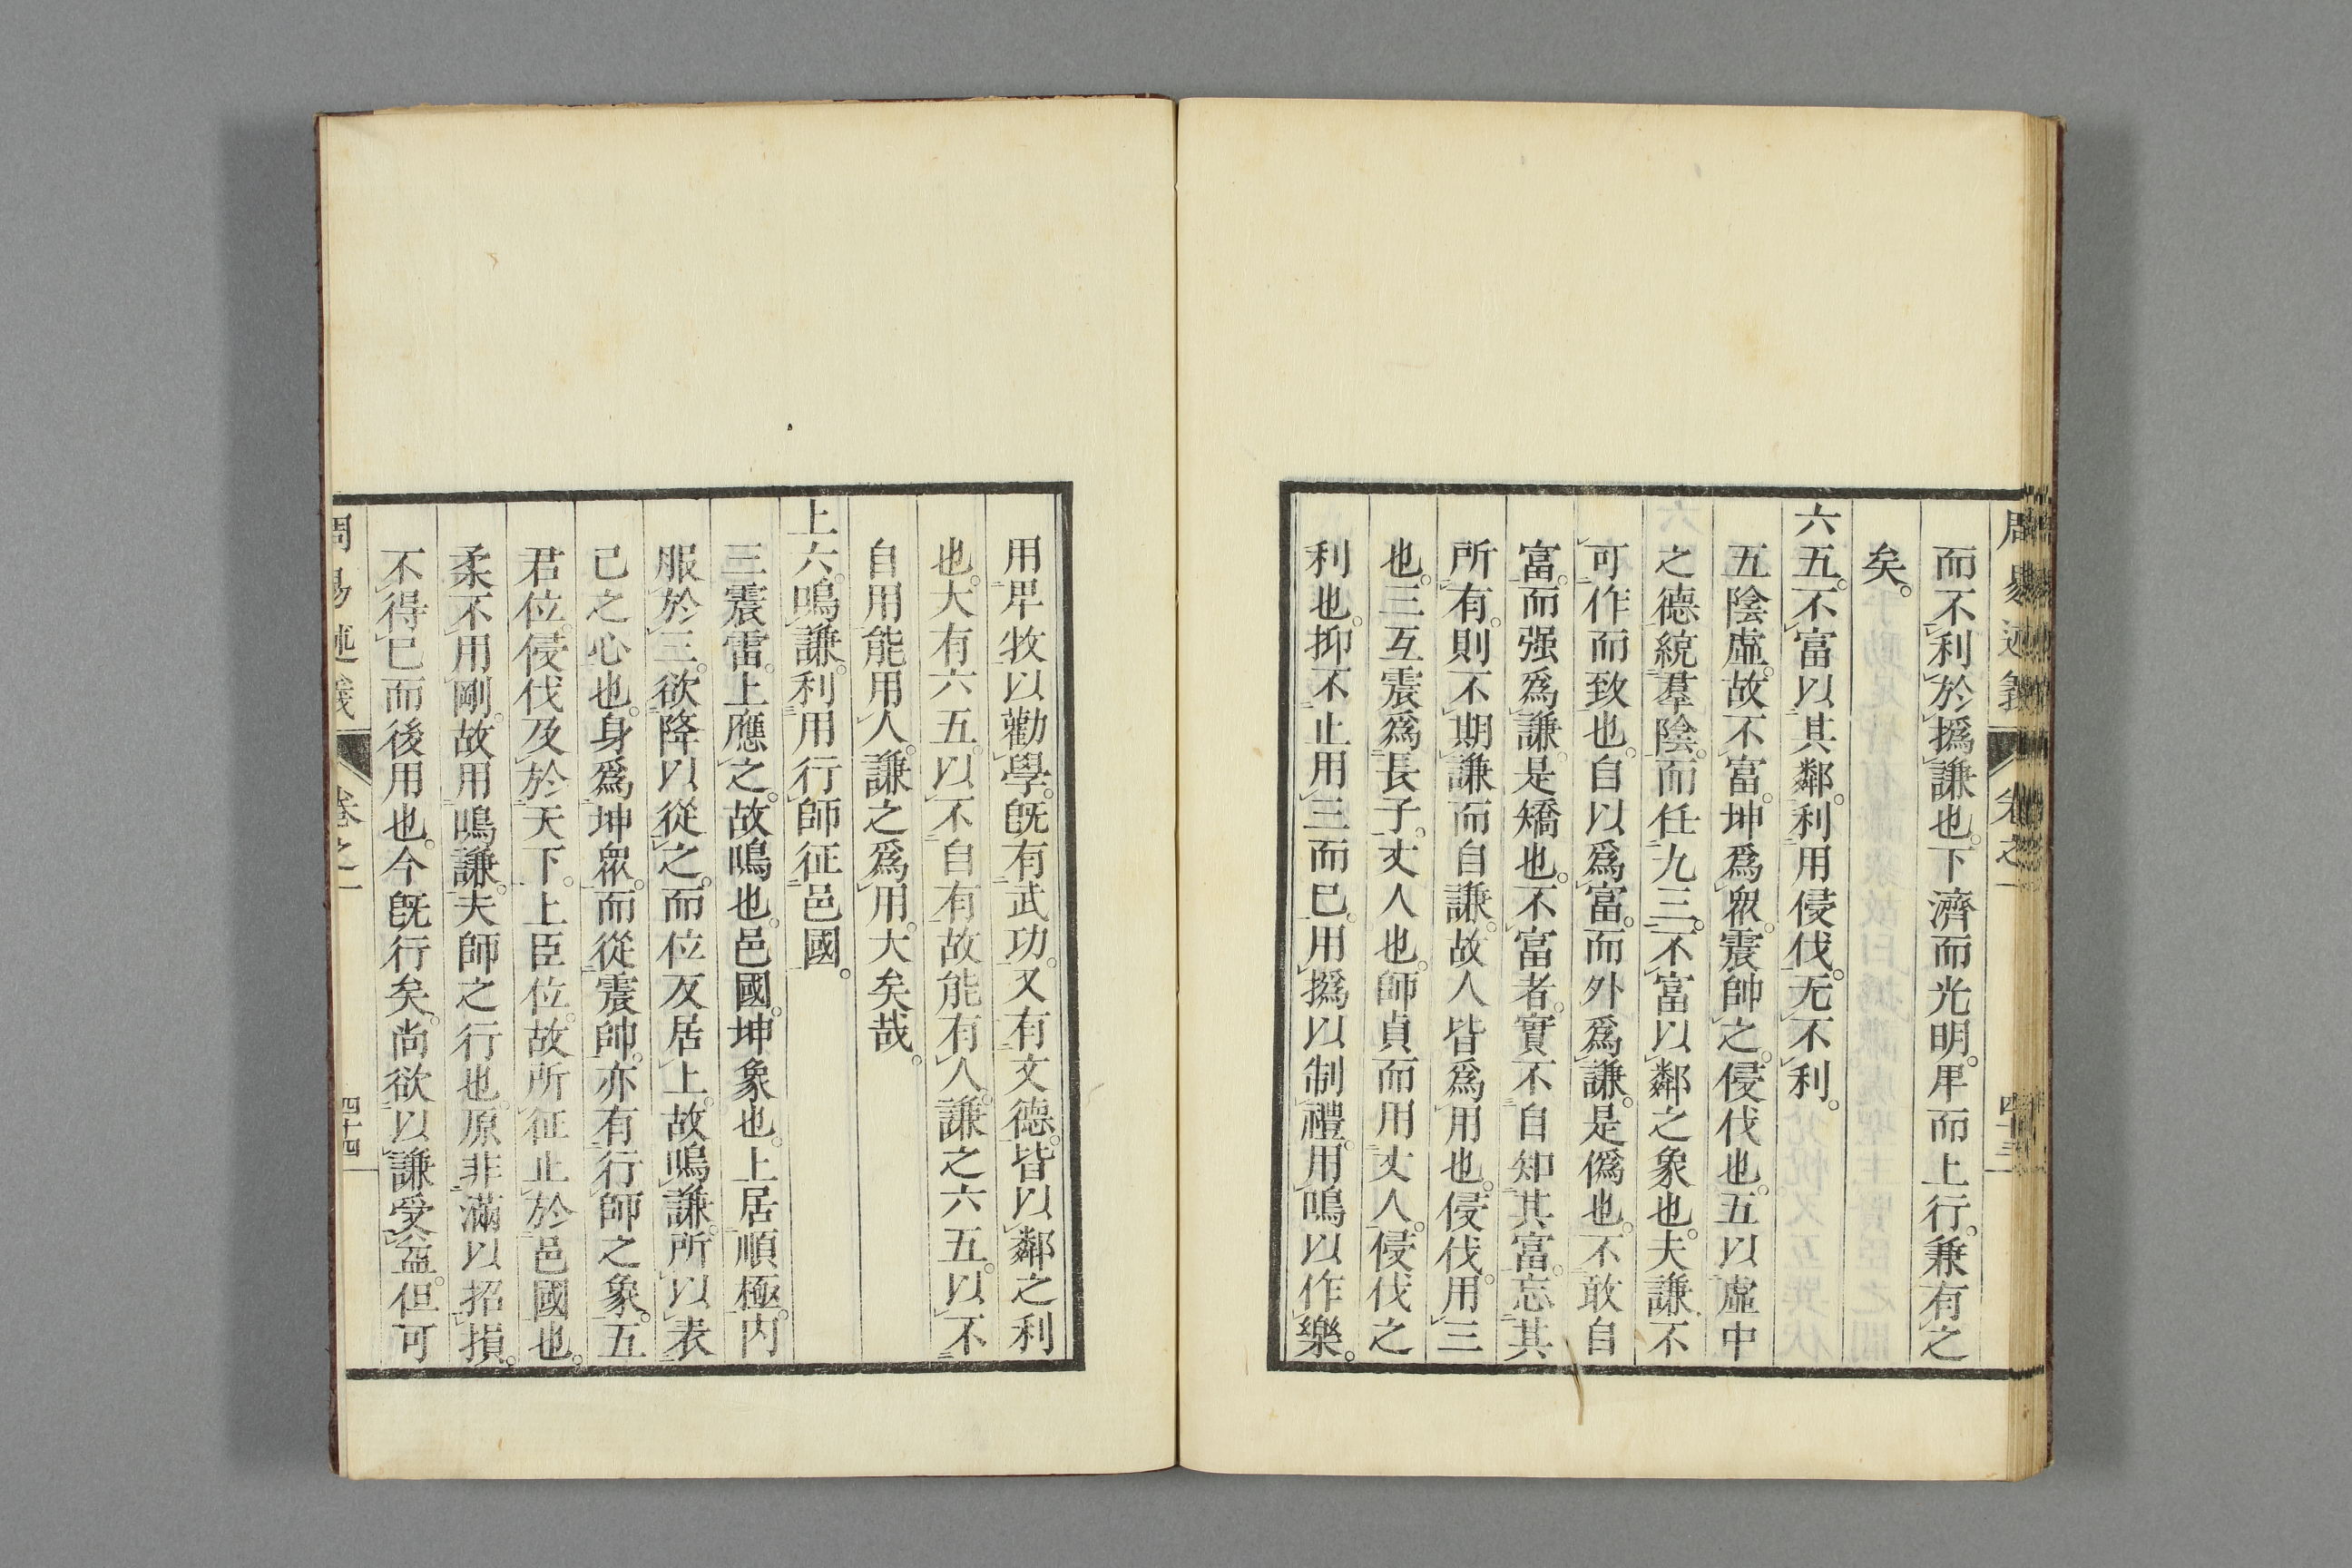 周易述義 卷之一 四十三
而不利於撝謙也。下濟而光明。卑而上行。兼有之
矣。
六五。不富以其鄰。利用侵伐。无不利。
五陰虛。故不富。坤爲眾。震帥之。侵伐也。五以虛中
之德統羣陰。而任九三。不富以鄰之象也。夫謙不
可作而致也。自以爲富。而外爲謙。是僞也。不敢自
富。而强爲謙。是矯也。不富者。實不自知其富。忘其
所有。則不期謙而自謙。故人皆爲用也。侵伐。用三
也。三互震爲長子。丈人也。師貞而用丈人。侵伐之
利也。抑不止用三而已。用撝以制禮。用鳴以作樂。
用卑牧以勸學。旣有武功。又有文德。皆以鄰之利
也。大有六五。以不自有故能有人。謙之六五。以不
自用能用人。謙之爲用。大矣哉。
上六。鳴謙。利用行師征邑國。
三震雷。上應之。故鳴也。邑國。坤象也。上居順極。內
服於三。欲降以從之。而位反居上。故鳴謙。所以表
己之心也。身爲坤眾。而從震帥。亦有行師之象。五
君位。侵伐及於天下。上臣位。故所征止於邑國也。
柔不用剛。故用鳴謙。夫師之行也。原非滿以招損。
不得已而後用也。今旣行矣。尚欲以謙受益。但可
周易述義 卷之一 四十四